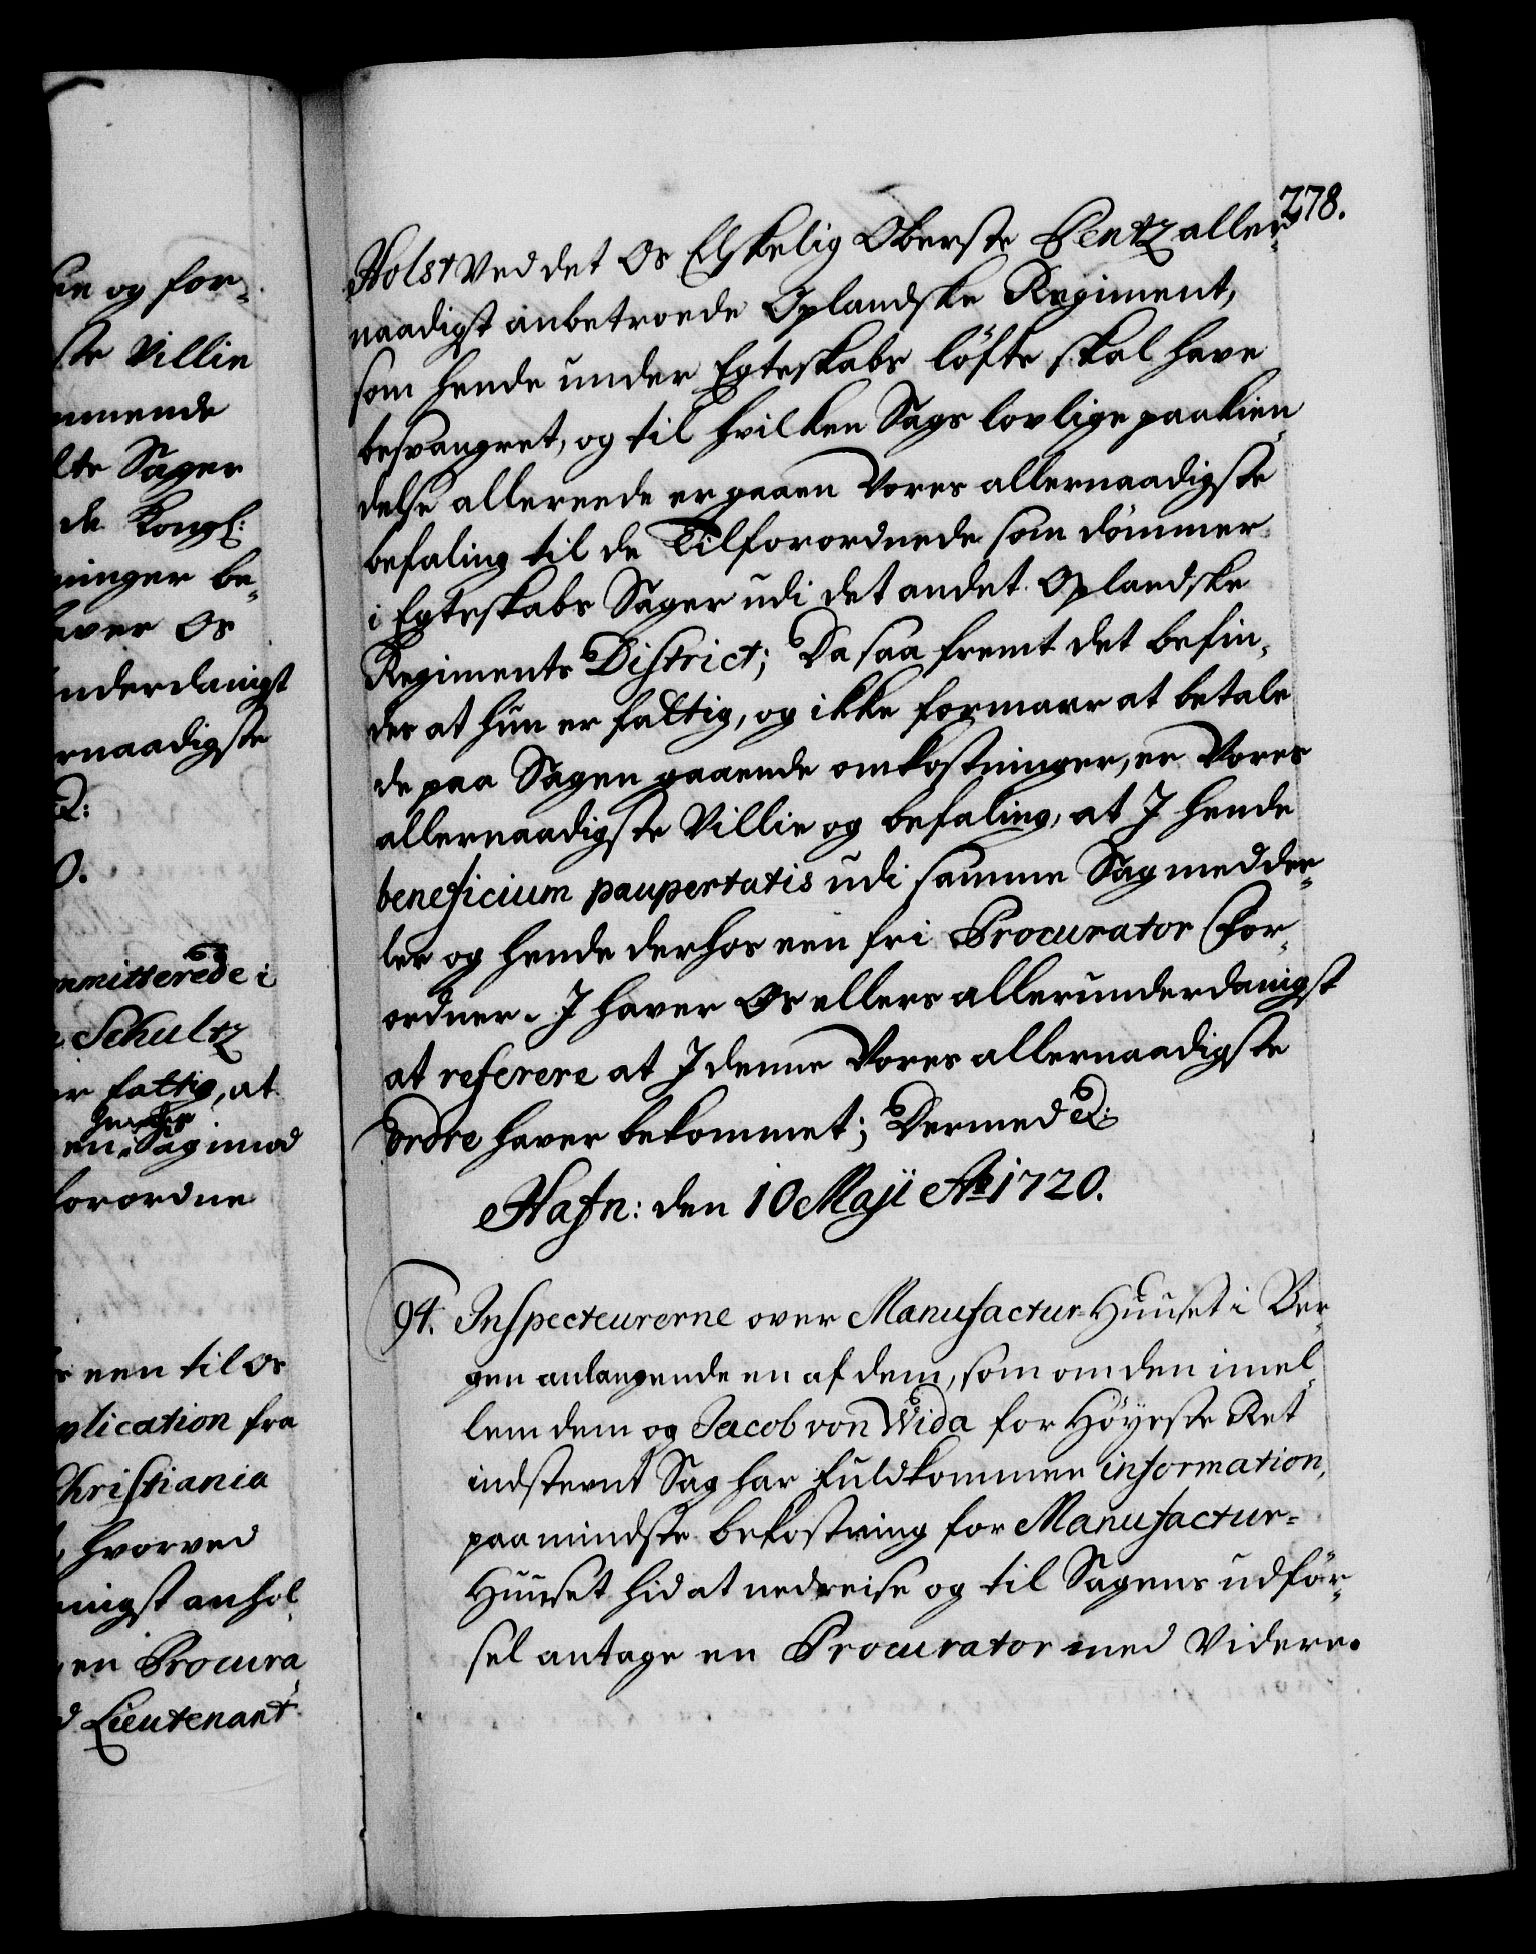 ke og for-
ste Villie
mmende
lte Sager
de Kongl:
ninger be-
aver Os
nderdanigst
rnaadigste
mmitterede i
Schultz
er fattig, at
en Sag imod
forordne
een til Os
plication fra
Christiania
hvorved
nigst anhol-
en Procura-
d Lieutenant
278.
Holst ved det Os Elskelig Oberste Pentz aller-
naadigst anbetroede Oplandske Regiment,
som hende under Egteskabs løfte skal have
besvangret, og til hvilken Sags lovlige paakien-
delse allereede er gaaen Vores allernaadigste
befaling til de Tilforordnede som dömmer
i Egteskabs Sager udi det andet Oplandske
Regiments District; Da saa fremt det befin-
des at hun er fattig, og ikke formaar at betale
de paa Sagen gaaende omkostninger, er Vores
allernaadigste Villie og befaling, at I hende
beneficium paupertatis udi samme Sag meddee-
ler og hende derhos een fri Procurator for-
ordner. I haver Os ellers allerunderdanigst
at referere at I denne Vores allernaadigste
ordre haver bekommet; Dermed &:
Hafn: den 10 Maji Ao 1720.
94. Inspecteurerne over Manufactur-Huuset i Ber-
gen anlangende en af dem, som om den imel-
lem dem og Jacob von Wida for Höyeste Ret
indstevnt Sag har fuldkommen information,
paa mindste bekostning for Manufactur-
Huuset hid at nedreise og til Sagens udför-
sel antage en Procurator med Videre.